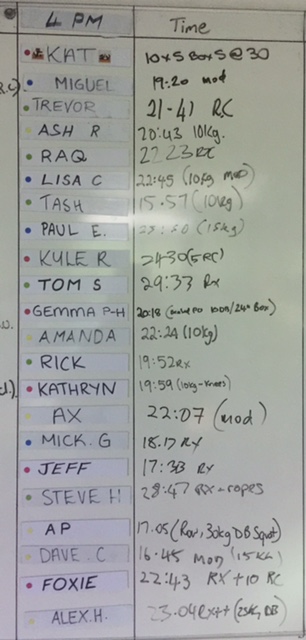 4 PM Time
KAT 10x5 Box S @ 30
MIGUEL 19:20 mod
TREVOR 21-41 RC
ASH R 20:43 10kg.
RAQ 22 23 RX
LISA C 22:45 (10kg mod)
TASH 15.57 (10kg)
PAUL E. (15kg)
KYLE R 2430 (5RC)
TOM S 29:33 Rx
GEMMA P-H 20:18 24" Box)
AMANDA 22:24 (10kg)
RICK 19:52 Rx
KATHRYN 19:59 (10kg-knees)
AX 22:07 (mod)
MICK. G 18.17 RX
JEFF 17:33 Rx
STEVE H 28:47 RX - ropes
AP 17.05 (Row, 30kg DB Squat)
DAVE. C 16.45 Mod (15KG)
FOXIE 22:43 RX + 10 RC
ALEX.H. 23.04 Rx++ (25KG DB)